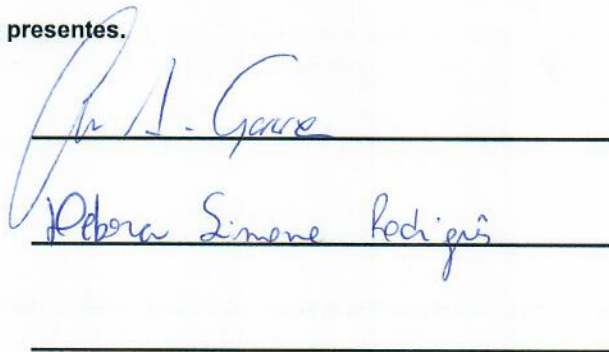 presentes.
A.
Debora Simone Rodigês